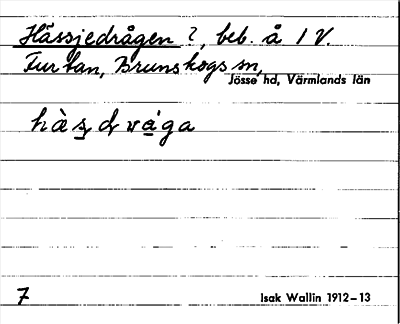 Hässjedrågen ?, beb. å 1 V.
Furtan, Brunskogs sn,
Jösse hd, Värmlands län
hàs̩ d rága
7
Isak Wallin 1912–13